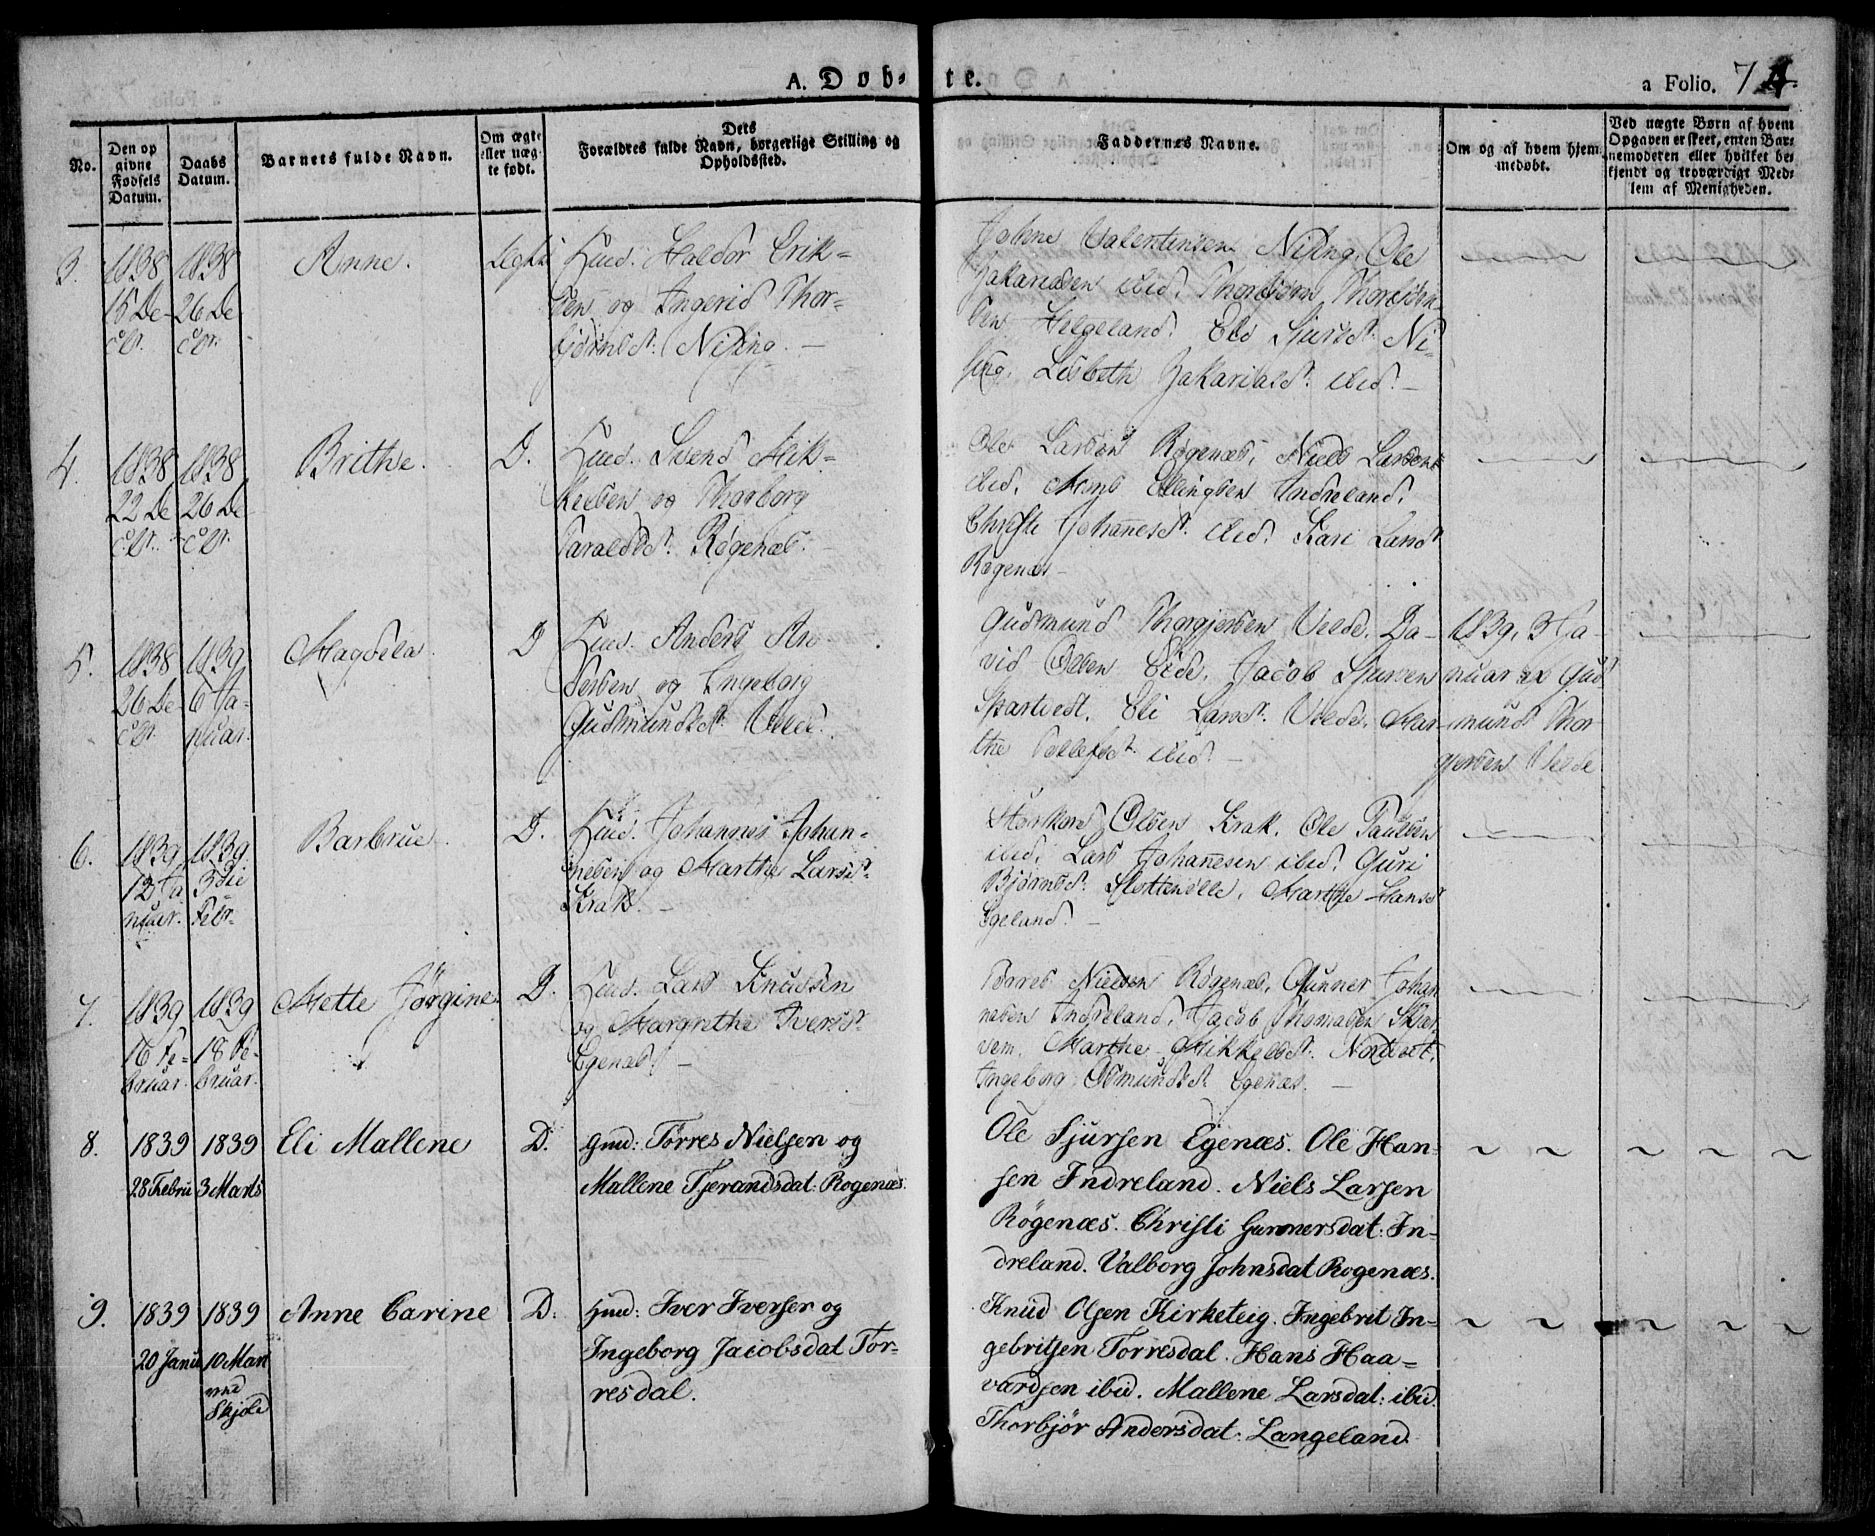 A. Døb-te.
a Folio. 74.
No.
Den op
givne
Fødsels
Datum.
Daabs
Datum.
Barnets fulde Navn.
Om ægte
eller uæg-
te født.
Dets
Forældres fulde Navn, borgerlige Stilling og
Opholdssted.
Faddernes Navne.
Om og af hvem hjem-
medøbt.
Ved uægte Børn af hvem
Opgaven er skeet, enten Bar-
nemoderen eller hvilket be-
kjendt og troværdigt Med-
lem af Menigheden.
3.
1838
15 De-
cbr.
1838
26 De
cbr.
Anne.
Huusf. Haldor Erik-
sen og Ingerid Thor-
bjørnsd: Nising. —
Johne Valentinsen Nising, Ole
Zakariasen ibid, Thorbjørn Thorbjørn
sen Helgeland. Eli Sjursd: Ni-
sing. Lisbeth Zakariasd: ibid. —
4.
1838
22 De
cbr.
1838
26 De
cbr.
Brithe.
D.
Huusf. Svend Mik-
kelsen og Thorborg
Taraldsd: Røgenæs. —
Ole Larsen Røgenæs, Niels Larsen
ibid, Mons Ellingsen Indreland,
Christi Johannesd: ibid. Kari Larsd
Røgenæs —
5.
1838
26 De-
cbr.
1839
6 Ja-
nuar.
Magdela.
D
Huusf. Anders An-
dersen og Ingeborg
Gudmundsd: Velde.
Gudmund Thorgjersen Velde. Da-
vid Olsen Eide. Jacob Sjursen
Spartvedt. Eli Larsd: Velde. Mar-
the Tollefsd: ibid. —
1839, 3 Ja-
nuar af Gud
mund Thor-
gjersen Velde
6.
1839
12 Ja
nuar.
1839.
3die
Febr.
Barbrue.
D.
Huusf. Johannes Johan-
nesen og Marthe Larsd:
Krak. —
Størkor Olsen Krak. Ole Paulsen
ibid, Lars Johannesen ibid. Guri
Bjørnsd: Slottevolle, Marthe Hansd
Egeland. —
7.
1839
16 Fe-
bruar.
1839
18 Fe-
bruar.
Mette Jørgine.
D.
Huusf. Lars Knudsen
og Margrethe Iversd:
Egenæs. —
Tørres Nielsen Røgenæs, Gunner Johan
nesen Indreland, Jacob Thomasen Skjer
vem. Marthe Mikkelsd: Nordvet.
Ingeborg Osmundsd: Egenæs. —
8.
1839
28 Febru
1839
3 Marts
Eli Mallene
D.
Gmd: Tørres Nielsen og
Mallene Tjerandsdat: Rogenæs.
Ole Sjursen Egenæs. Ole Han-
sen Indreland. Niels Larsen
Røgenæs. Christi Gunnersdat: In-
dreland. Valborg Johnsdat Rogenæs.
9.
1839
20 Janu
1839
10 Mar
ved
Skjold
Anne Carine
D:
Hmd: Iver Iversen og
Ingeborg Jacobsdat Tor-
resdal.
Knud Olsen Kirketeig. Ingebret In-
gebritsen Torresdal. Hans Haa-
vardsen ibid. Mallene Larsdat: ibid.
Thorbjør Andersdat: Langeland